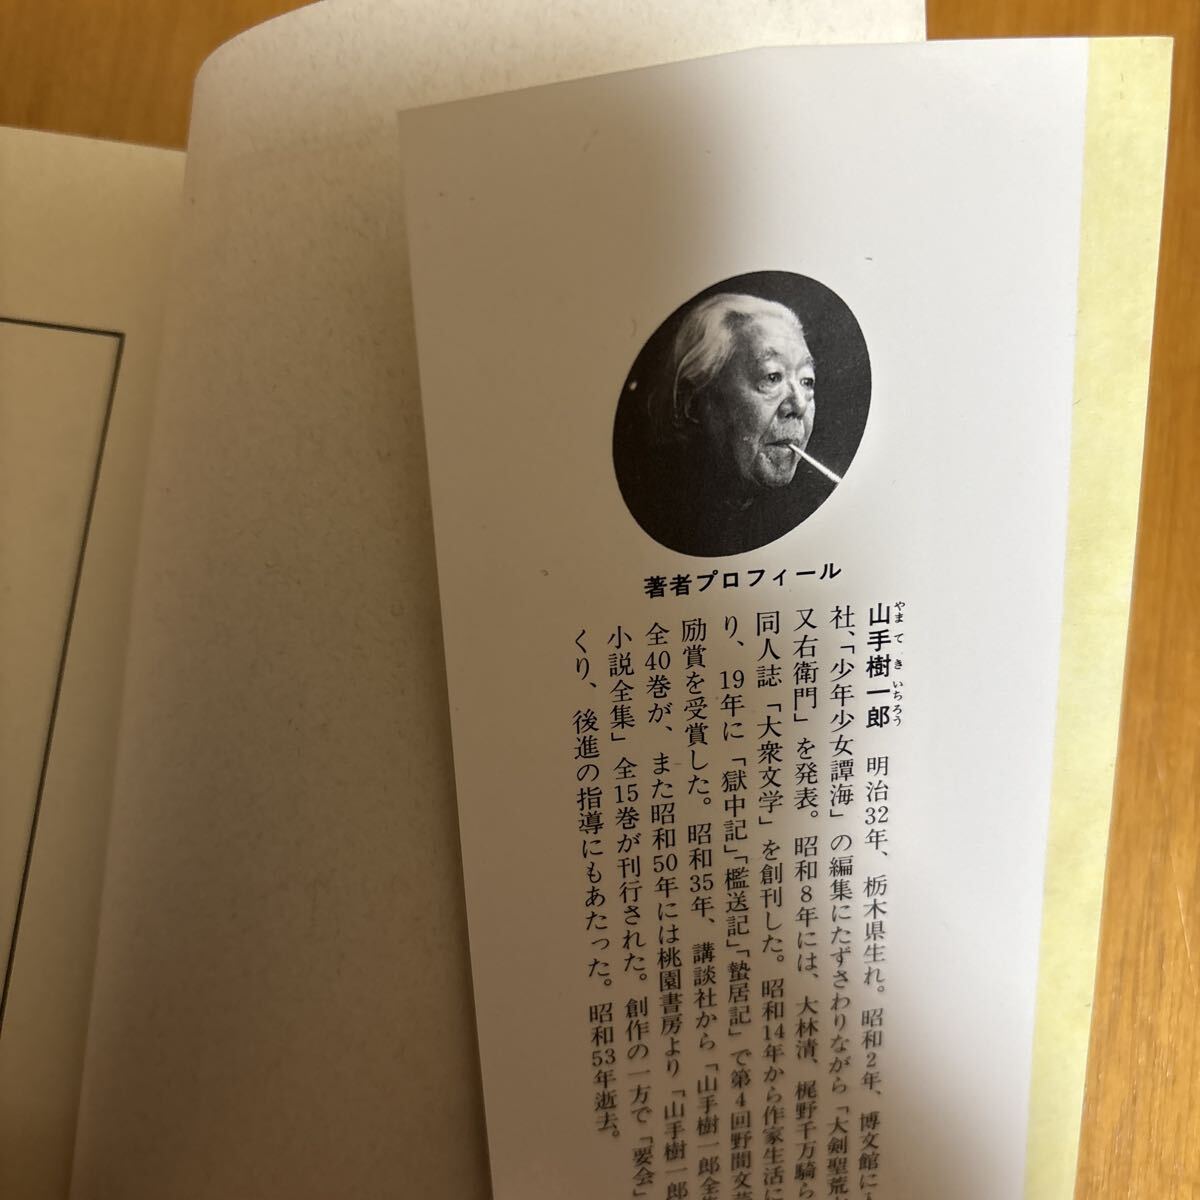 著者プロフィール
山手樹一郎 明治32年、栃木県生れ。昭和2年、博文館に入
やまてきいちろう
社、「少年少女譚海」の編集にたずさわりながら「大剣聖荒木
又右衛門」を発表。昭和8年には、大林清、梶野千万騎ら
同人誌「大衆文学」を創刊した。昭和14年から作家生活に
り、19年に「獄中記」「檻送記」「蟄居記」で第4回野間文芸
励賞を受賞した。昭和35年、講談社から「山手樹一郎全集
全40巻が、また昭和50年には桃園書房より「山手樹一郎
小説全集」全15巻が刊行された。創作の一方で「要会」
くり、後進の指導にもあたった。昭和53年逝去。